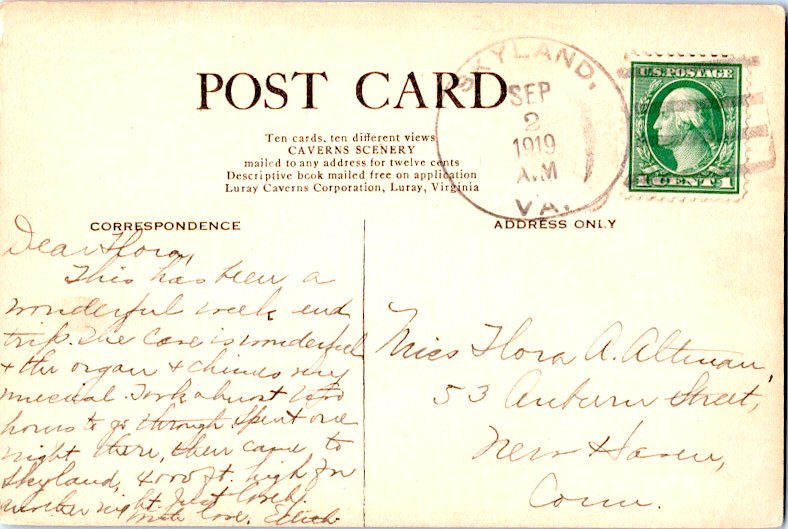 POST CARD
Ten cards, ten different views
CAVERNS SCENERY
mailed to any address for twelve cents
Descriptive book mailed free on application
Luray Caverns Corporation, Luray, Virginia
SKYLAND,
SEP
2
1919
A.M
VA.
U.S. POSTAGE
1 CENT 1
CORRESPONDENCE
Dear Flora,
This has been a
wonderful week end
trip. The Cave is wonderful
+ the organ + chimes very
musical. Took about two
hours to go through. Spent one
night there, then came to
Skyland, 4000 ft. high for
another night. Just lovely.
With love, Edith
ADDRESS ONLY
Miss Flora A. Altman,
53 Auburn Street,
New Haven,
Conn.